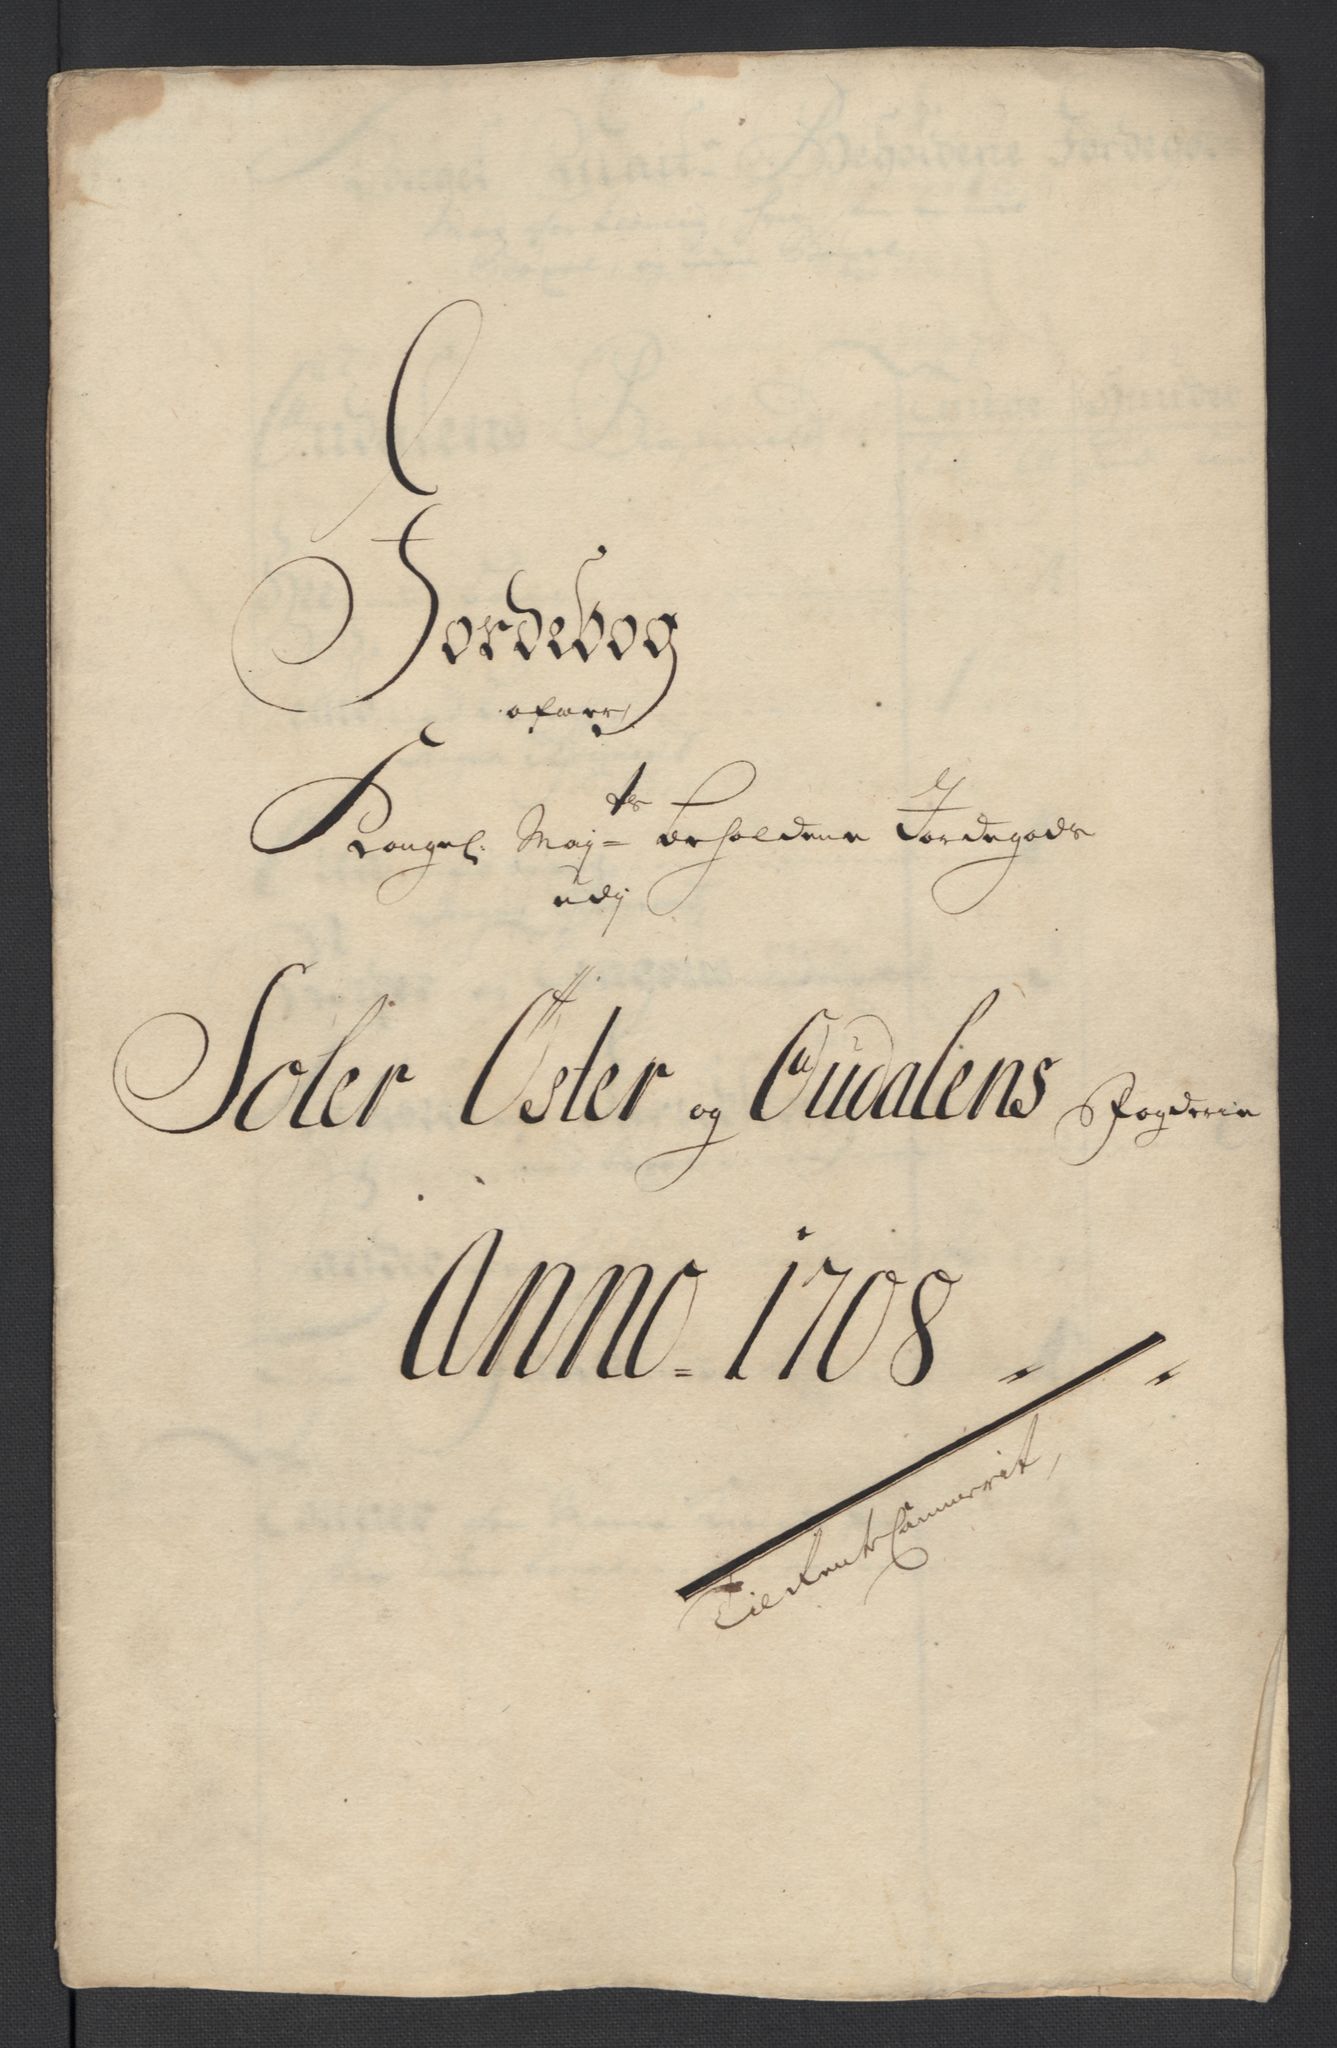 Jordebog
ofver
Kongel: Maj=ts beholdene Jordegods
udj
Soler Öster og Oudalens Fogderie
Anno = 1708
Til Rente Cammerit,